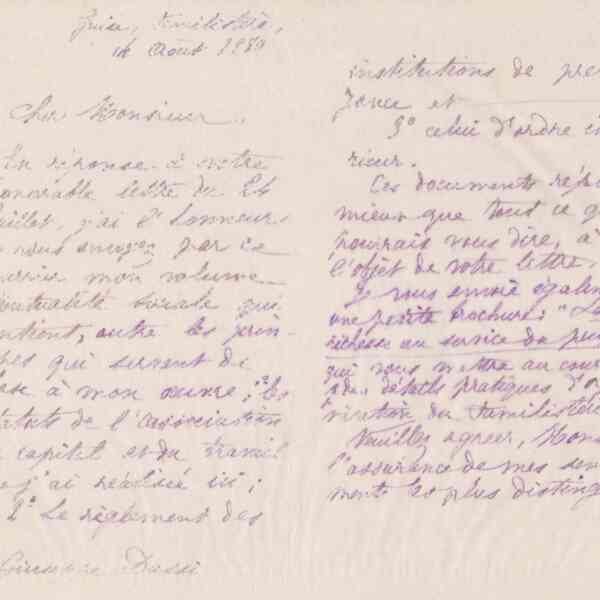 Guise, Familistère,
14 Août 1880
Cher Monsieur,
En réponse à votre
honorable lettre du 24
juillet, j'ai l'honneur
vous envoyer par ce
courrier mon volume
Mutualité sociale qui
contient, outre les prin-
cipes qui servent de
base à mon œuvre, 1º les
statuts de l'association
du capital et du travail
que j'ai réalisée ici;
2º Le règlement des
institutions de pré
yance et
3º celui d'ordre in
rieur.
Ces documents rép
mieux que tout ce q
pourrais vous dire, à
l'objet de votre lettre.
Je vous envoie égalem
une petite brochure: "La
richesse au service du peu
qui vous mettra au cour
des détails pratiques d'o
nisation du familistère
Veuillez agréer, Mons
l'assurance de mes sen
ments les plus disting